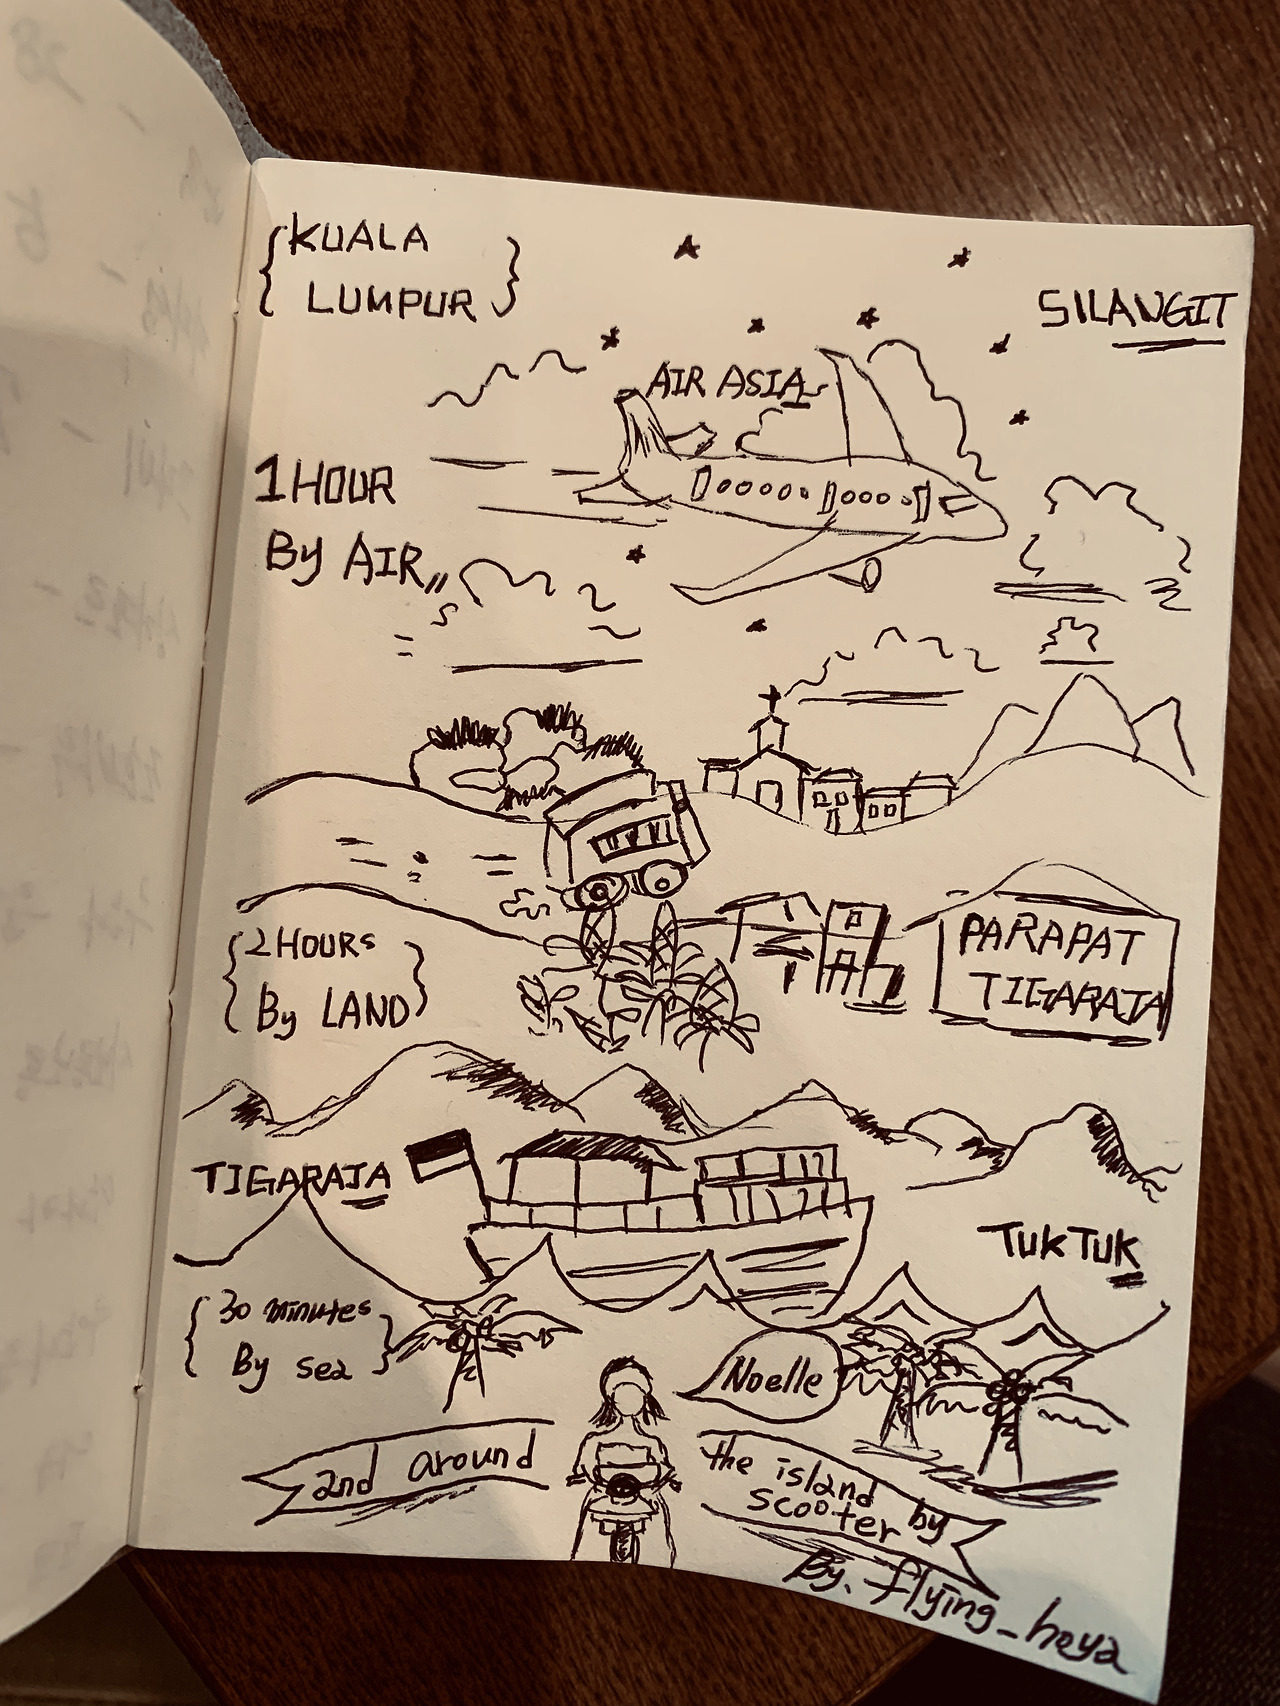 KUALA
LUMPUR
SILANGIT
AIR ASIA
1 HOUR
By AIR
2 HOURS
By LAND
PARAPAT
TIGARAJA
TIGARAJA
TUKTUK
30 minutes
By sea
Noelle
and around
the island by
scooter
By. flying_heya